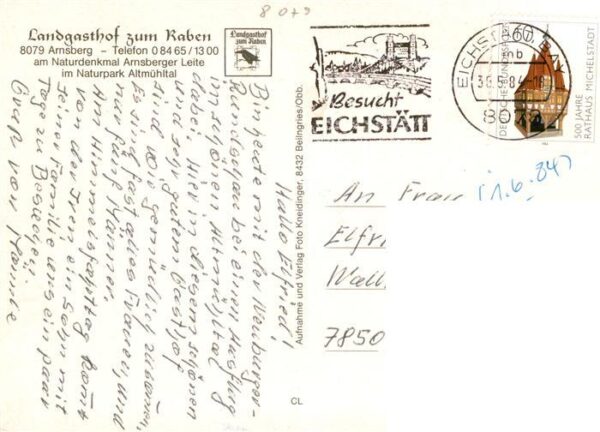 Landgasthof zum Raben
8079 Arnsberg - Telefon 0 84 65 / 13 00
am Naturdenkmal Arnsberger Leite
im Naturpark Altmühltal
Landgasthof
zum Raben
8079
Besucht
EICHSTÄTT
EICHSTÄTT, BAY
mb
84-18
DEUTSCHE BUNDESPOST
60
500 JAHRE
RATHAUS MICHELSTADT
(1.6.84)
Hallo Elfried!
Bin heute mit der Neuburger-
Rundschau bei einem Ausflug
im schönen Altmühltal
dabei. Hier in diesem schönen
und sehr gutem Gasthof
sind wir gemütlich zusammen.
Es sind fast alles Frauen, und
nur fünf Männer.
Am Himmelsfahrttag kommt
von der Iren ein Sohn mit
seine Familie uns ein paar
Tag zu Besuchen.
Gruß von
Aufnahme und Verlag Foto Kneidinger, 8432 Beilngries/Obb.
CL
An Frau
Elfri
Wall
7850